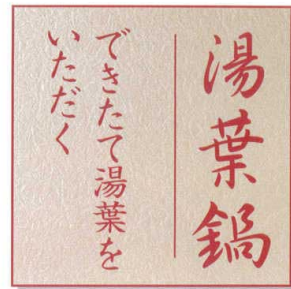 湯葉鍋
できたて湯葉を
いただく